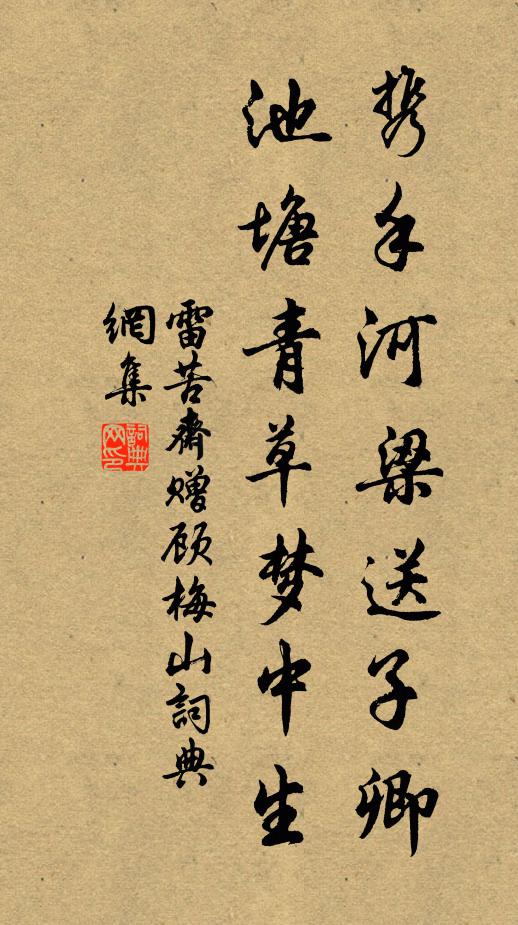 携手河梁送子卿
池塘青草梦中生
雷苦齋赠顾梅山詞典
網集
詞典
网印